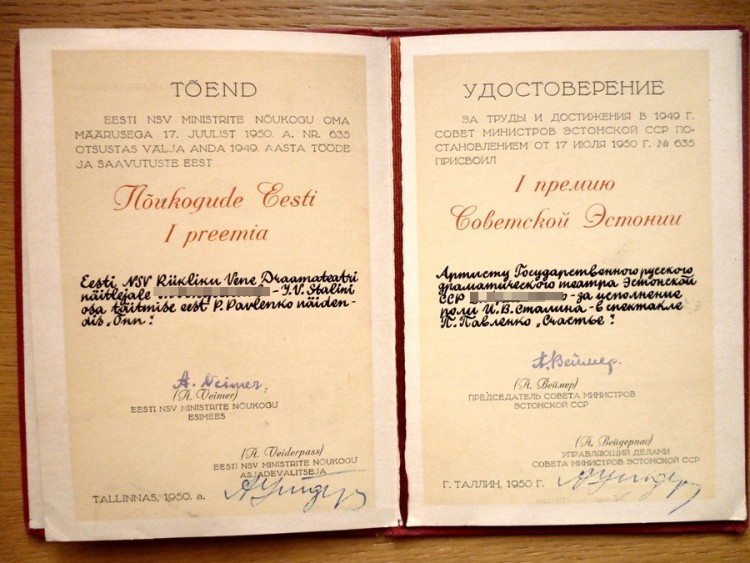 TÕEND
EESTI NSV MINISTRITE NÕUKOGU OMA
MÄÄRUSEGA 17. JUULIST 1950. A. NR. 635
OTSUSTAS VÄLJA ANDA 1949. AASTA TÖÖDE
JA SAAVUTUSTE EEST
Nõukogude Eesti
I preemia
Eesti NSV Riikliku Vene Draamateatri
näitlejale - J.V. Stalini
osa täitmise eest P. Pavlenko näiden-
dis „Õnn“.
A. Veimer.
(A. Veimer)
EESTI NSV MINISTRITE NÕUKOGU
ESIMEES
(A. Veiderpass)
EESTI NSV MINISTRITE NÕUKOGU
ASJADEVALITSEJA
TALLINNAS, 1950. a.
УДОСТОВЕРЕНИЕ
ЗА ТРУДЫ И ДОСТИЖЕНИЯ В 1949 Г.
СОВЕТ МИНИСТРОВ ЭСТОНСКОЙ ССР ПО-
СТАНОВЛЕНИЕМ ОТ 17 ИЮЛЯ 1950 Г. № 635
ПРИСВОИЛ
I премию
Советской Эстонии
Артисту Государственного русского
драматического театра Эстонской
ССР - за исполнение
роли И.В. Сталина - в спектакле
П. Павленко „Счастье“.
А. Веймер.
(А. Веймер)
ПРЕДСЕДАТЕЛЬ СОВЕТА МИНИСТРОВ
ЭСТОНСКОЙ ССР
(А. Вейдерпас)
УПРАВЛЯЮЩИЙ ДЕЛАМИ
СОВЕТА МИНИСТРОВ ЭСТОНСКОЙ ССР
Г. ТАЛЛИН, 1950 Г.